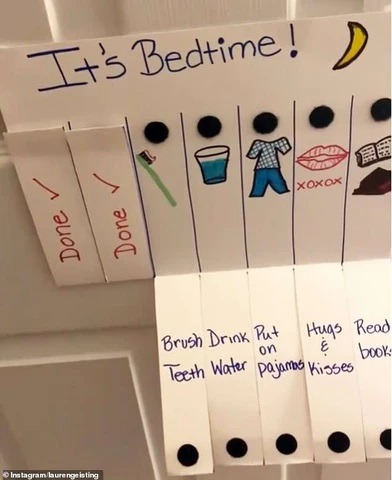 It's Bedtime!
Done ✓
Done ✓
XOXOX
Brush Teeth
Drink Water
Put on pajamas
Hugs & Kisses
Read book
© Instagram/laurengeisting